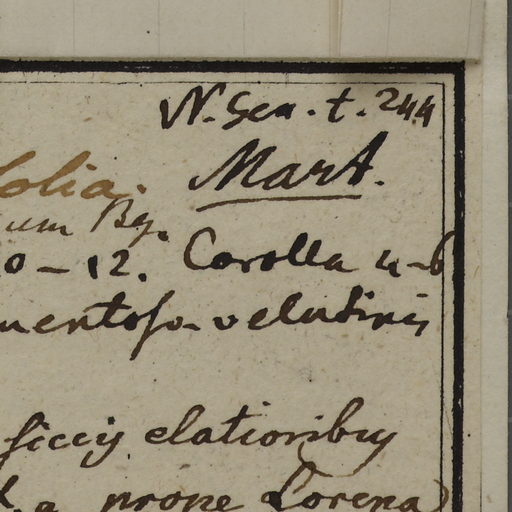 N. Gen. t. 244
folia. Mart.
um By.
0 – 12. Corolla 4-6
mentoso-velutinis
siccis elationibus
a prope Lorena)